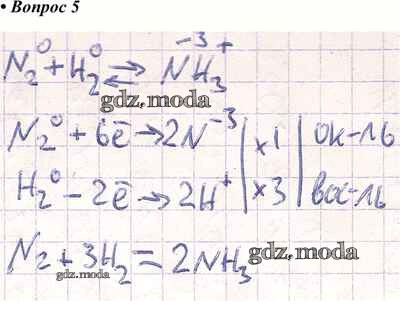 • Вопрос 5
N₂⁰ + H₂⁰ ⇄ N⁻³H₃⁺
gdz.moda
N₂⁰ + 6ē → 2N⁻³ | ×1 | ок-ль
H₂⁰ - 2ē → 2H⁺ | ×3 | вос-ль
N₂ + 3H₂ = 2NH₃ gdz.moda
gdz.moda